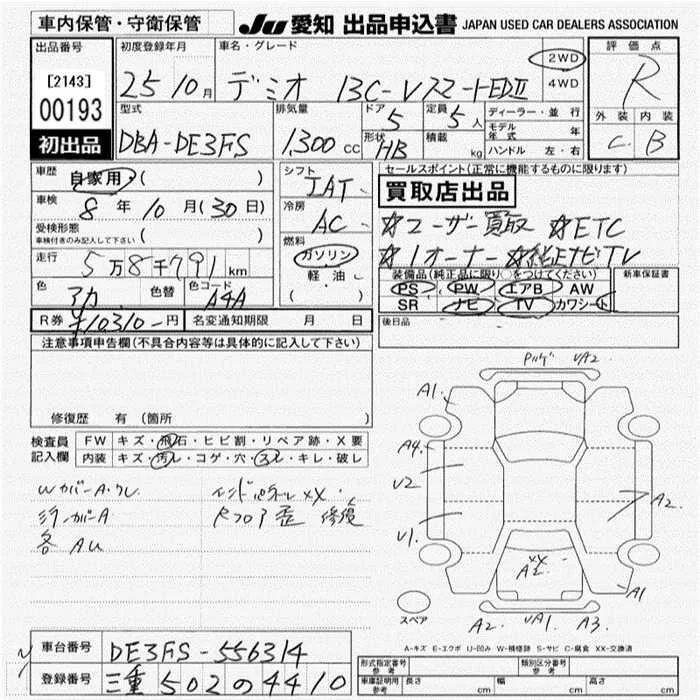 車内保管・守衛保管
JU 愛知 出品申込書 JAPAN USED CAR DEALERS ASSOCIATION
出品番号 初度登録年月 車名・グレード 評価点
[2143]
00193
初出品
25 10 月 デミオ 13C-VスマートED II 2WD 4WD R
型式 排気量 ドア 5 定員 5 人 ディーラー・並行 外装 内装
DBA-DE3FS 1,300 cc 形状 HB 積載 kg モデル年式 年 C B
ハンドル 左・右
車歴 自家用 ( ) シフト IAT
セールスポイント(正常に機能するものに限ります)
車検 8 年 10 月 (30 日) 冷房 AC
買取店出品
受検形態
車検付きのみ記入して下さい ( )
☆ユーザー買取 ☆ETC
走行 5万8千791 km 燃料 ガソリン 軽油 ( )
☆1オーナー ☆純正ナビTV
色 アカ 色替 色コード A4A
装備品(純正品に限り○をつけてください) 新車保証書
PS PW エアB AW
SR ナビ TV カワシート
R券 ¥10310- 円 名変通知期限 月 日
後日品
注意事項申告欄(不具合内容等は具体的に記入して下さい)
修復歴 有 (箇所
検査員記入欄 FW キズ・飛石・ヒビ割・リペア跡・X要
内装 キズ・汚レ・コゲ・穴・スレ・キレ・破レ
WカバーA・クレ
ミラーカバーA
各 AU
インドパネルXX・
Rフロア歪 修復
VA2
A1
A4
V2
V1
A2
XX
A2
A1
スペア
A2 VA1 A3
A-キズ E-エクボ U-凹み W-補修跡 S-サビ C-腐食 XX-交換済
車台番号 DE3FS-556314
登録番号 三重 502 の 4410
形式指定番号 参考 類別区分番号 参考
車庫証明用 参考 長さ cm 幅 cm 高さ cm